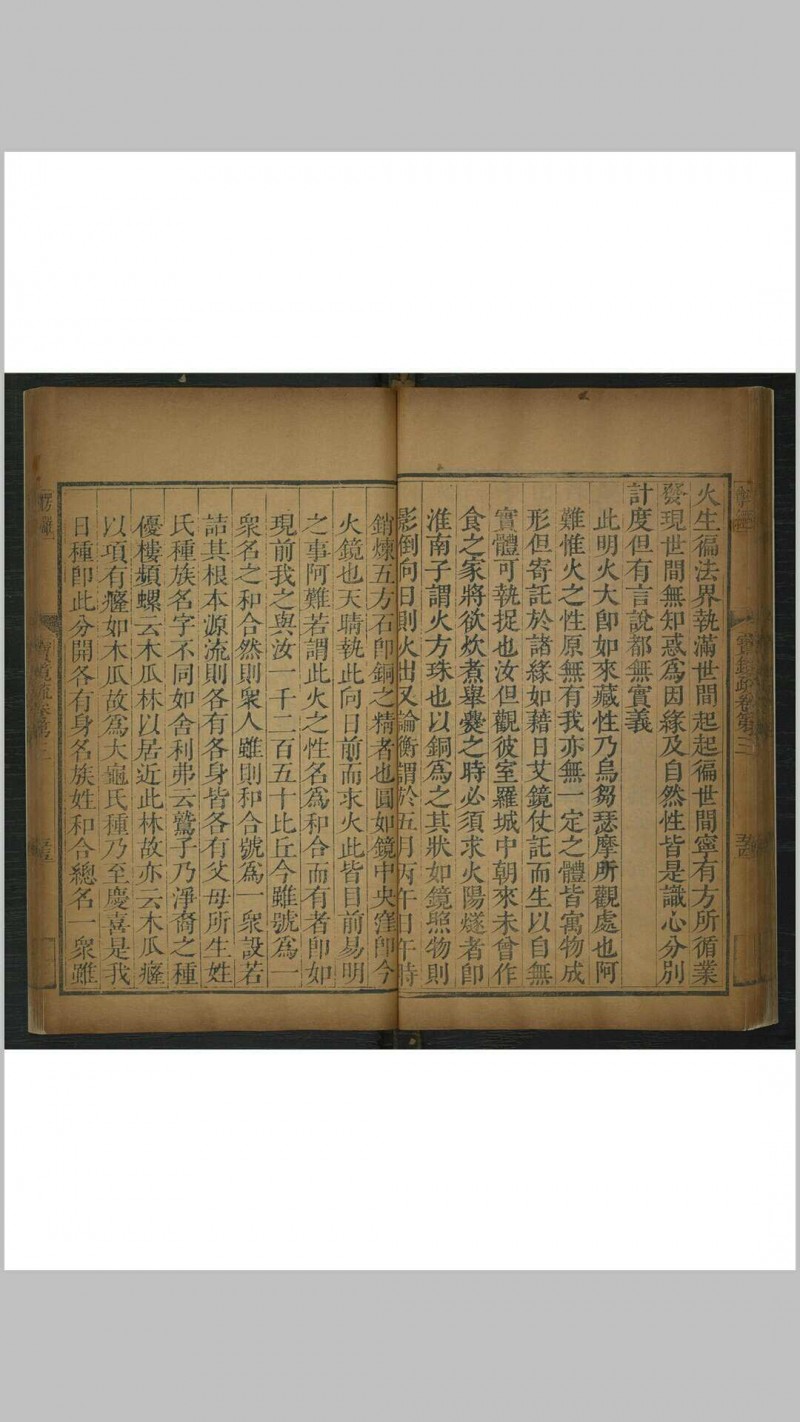 火生徧法界執滿世間起起徧世間寧有方所循業
發現世間無知惑爲因緣及自然性皆是識心分別
計度但有言說都無實義
此明火大卽如來藏性乃烏芻瑟摩所觀處也阿
難惟火之性原無有我亦無一定之體皆寓物成
形但寄託於諸緣如藉日艾鏡仗託而生以自無
實體可執捉也汝但觀彼室羅城中朝來未曾作
食之家將欲炊煮舉爨之時必須求火陽燧者卽
淮南子謂火方珠也以銅爲之其狀如鏡照物則
影倒向日則火出又論衡謂於五月丙午日午時
銷煉五方石卽銅之精者也圓如鏡中央窪卽今
火鏡也天晴執此向日前而求火此皆目前易明
之事阿難若謂此火之性名爲和合而有者卽如
現前我之與汝一千二百五十比丘今雖號爲一
衆名之和合然則衆人雖則和合號爲一衆設若
詰其根本源流則各有各身皆各有父母所生姓
氏種族名字不同如舍利弗云鷲子乃淨裔之種
優樓頻螺云木瓜林以居近此林故亦云木瓜癃
以項有癃如木瓜故爲大龜氏種乃至慶喜是我
日種卽此分開各有身名族姓和合總名一衆雖
楞嚴
寶鏡疏卷第三